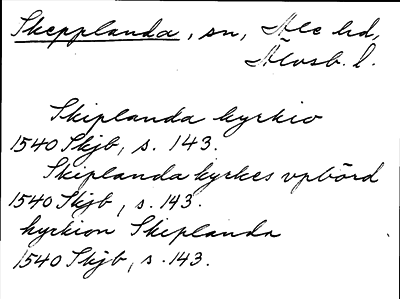 Skepplanda, sn, Ale hd,
Älvsb. l.
Skiplanda kyrkio
1540 Skjb, s. 143.
Skiplanda kyrkes vpbörd
1540 Skjb, s. 143.
kyrkion Skeplanda
1540 Skjb, s. 143.